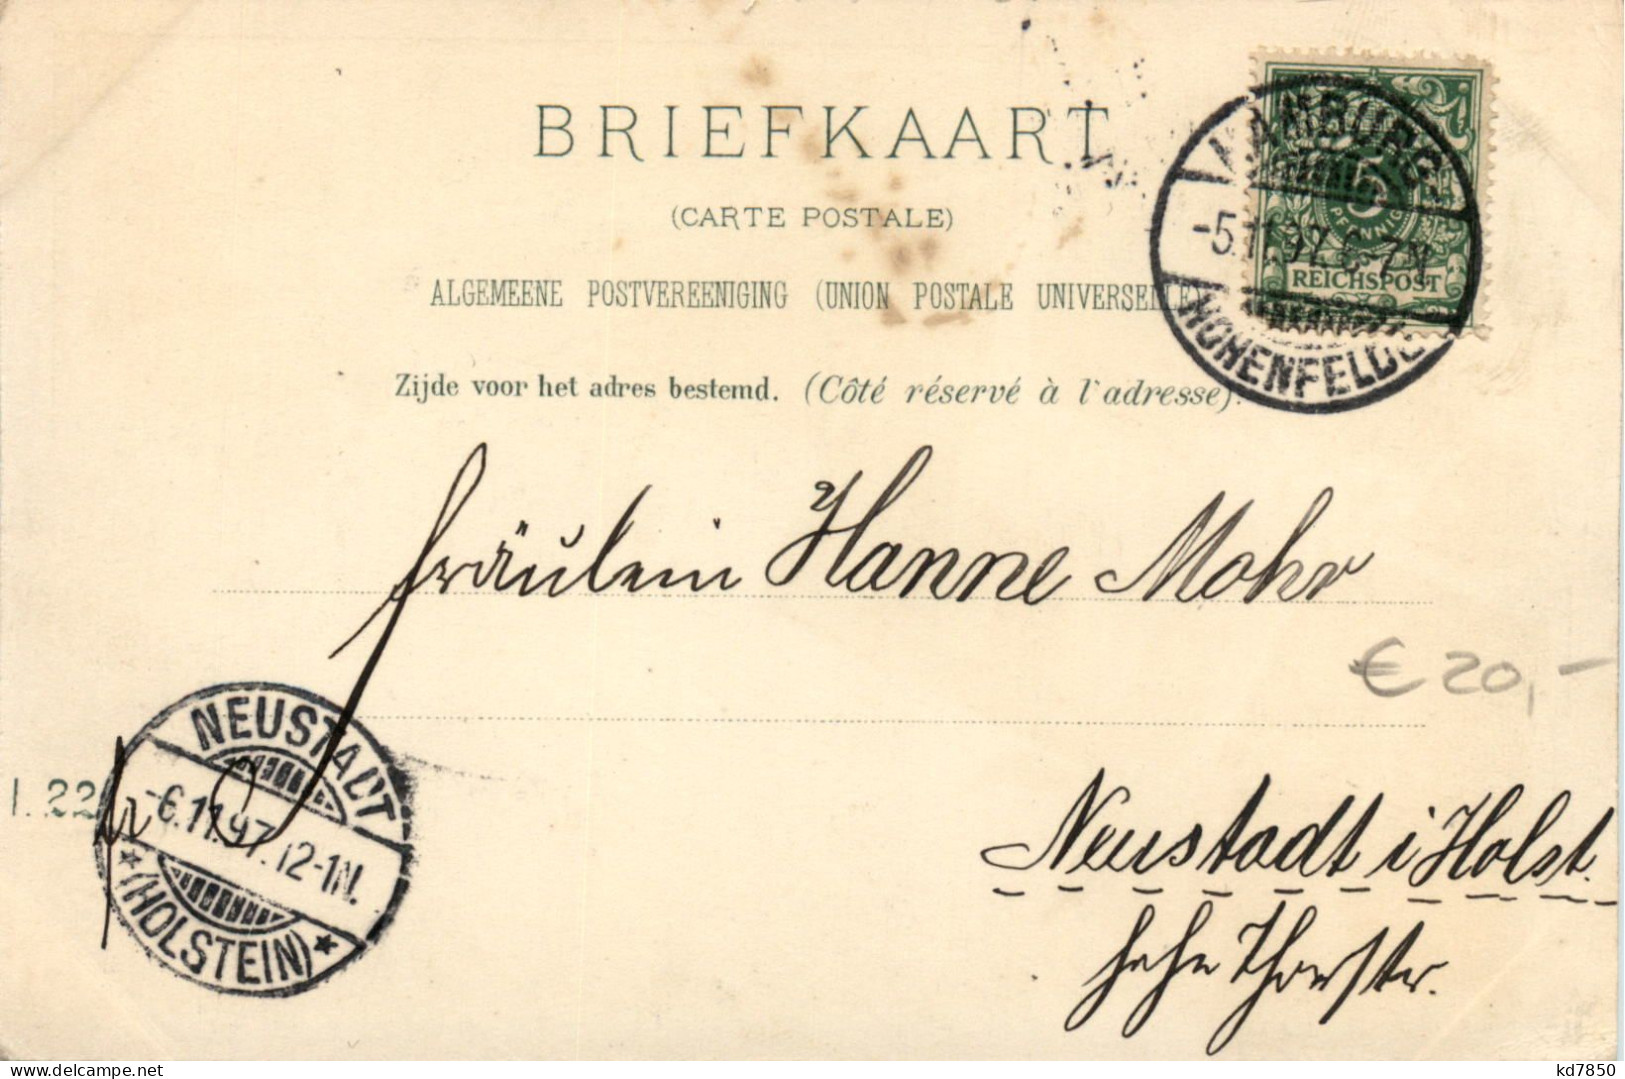 BRIEFKAART
(CARTE POSTALE)
ALGEMEENE POSTVEREENIGING (UNION POSTALE UNIVERSELLE)
Zijde voor het adres bestemd. (Côté réservé à l'adresse).
HAMBURG
-5.11.97. 6-7N
HOHENFELDE
5
PFENNIG
REICHSPOST
Fräulein Hanne Mohr
€ 20,-
NEUSTADT
-6.11.97. 12-1N.
(HOLSTEIN)
1.22
Neustadt i Holst.
hohe Thorstr.
kd7850